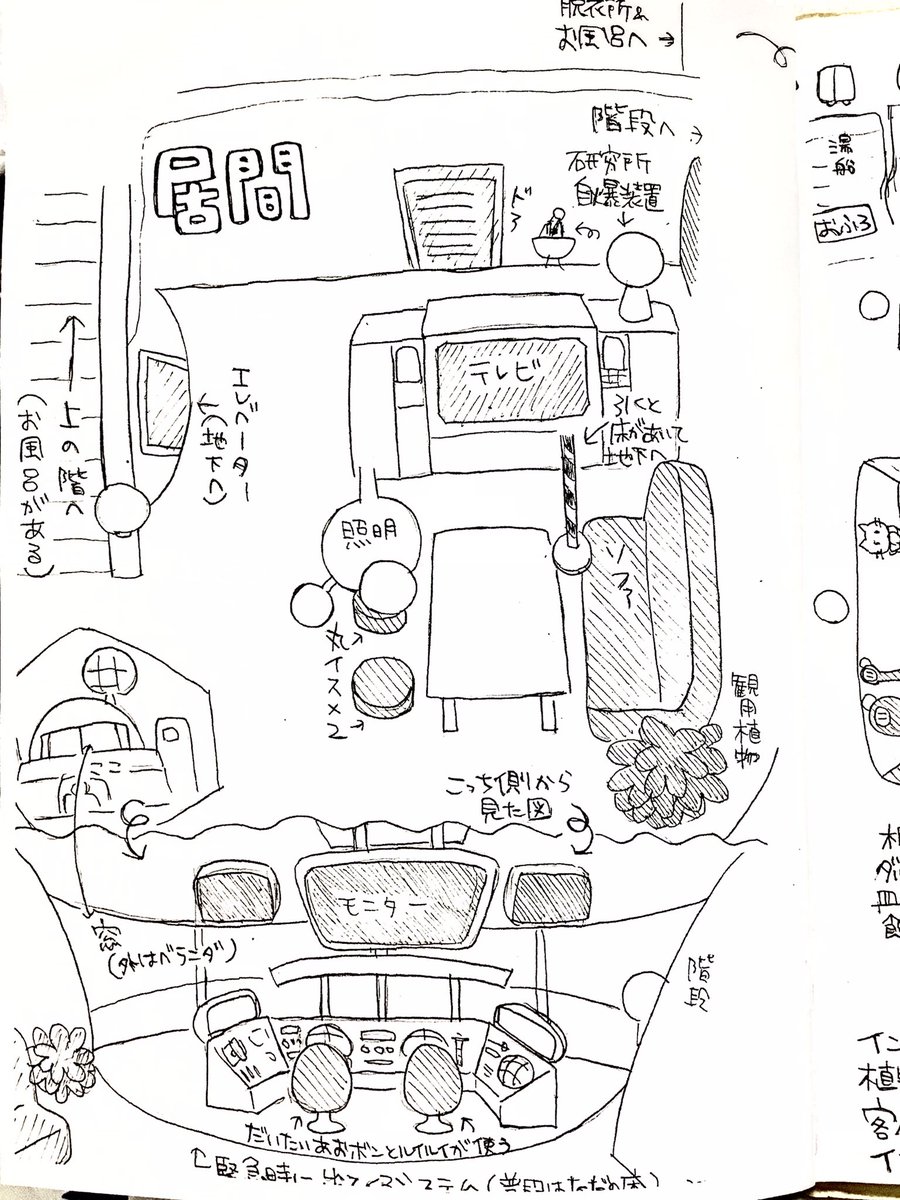 脱衣所&
お風呂へ→
階段へ→
居間
研究所
自爆装置
ドア
湯船
おふろ
テレビ
引くと
床があいて
地下へ
エレベーター
(地下へ)
上の階へ
(お風呂がある)
照明
ソファ
丸イス×2
観用植物
こっち側から
見た図
モニター
窓
(外はベランダ)
階段
だいたいあおボンとルイルイが使う
緊急時に
システム(普段はただの床)